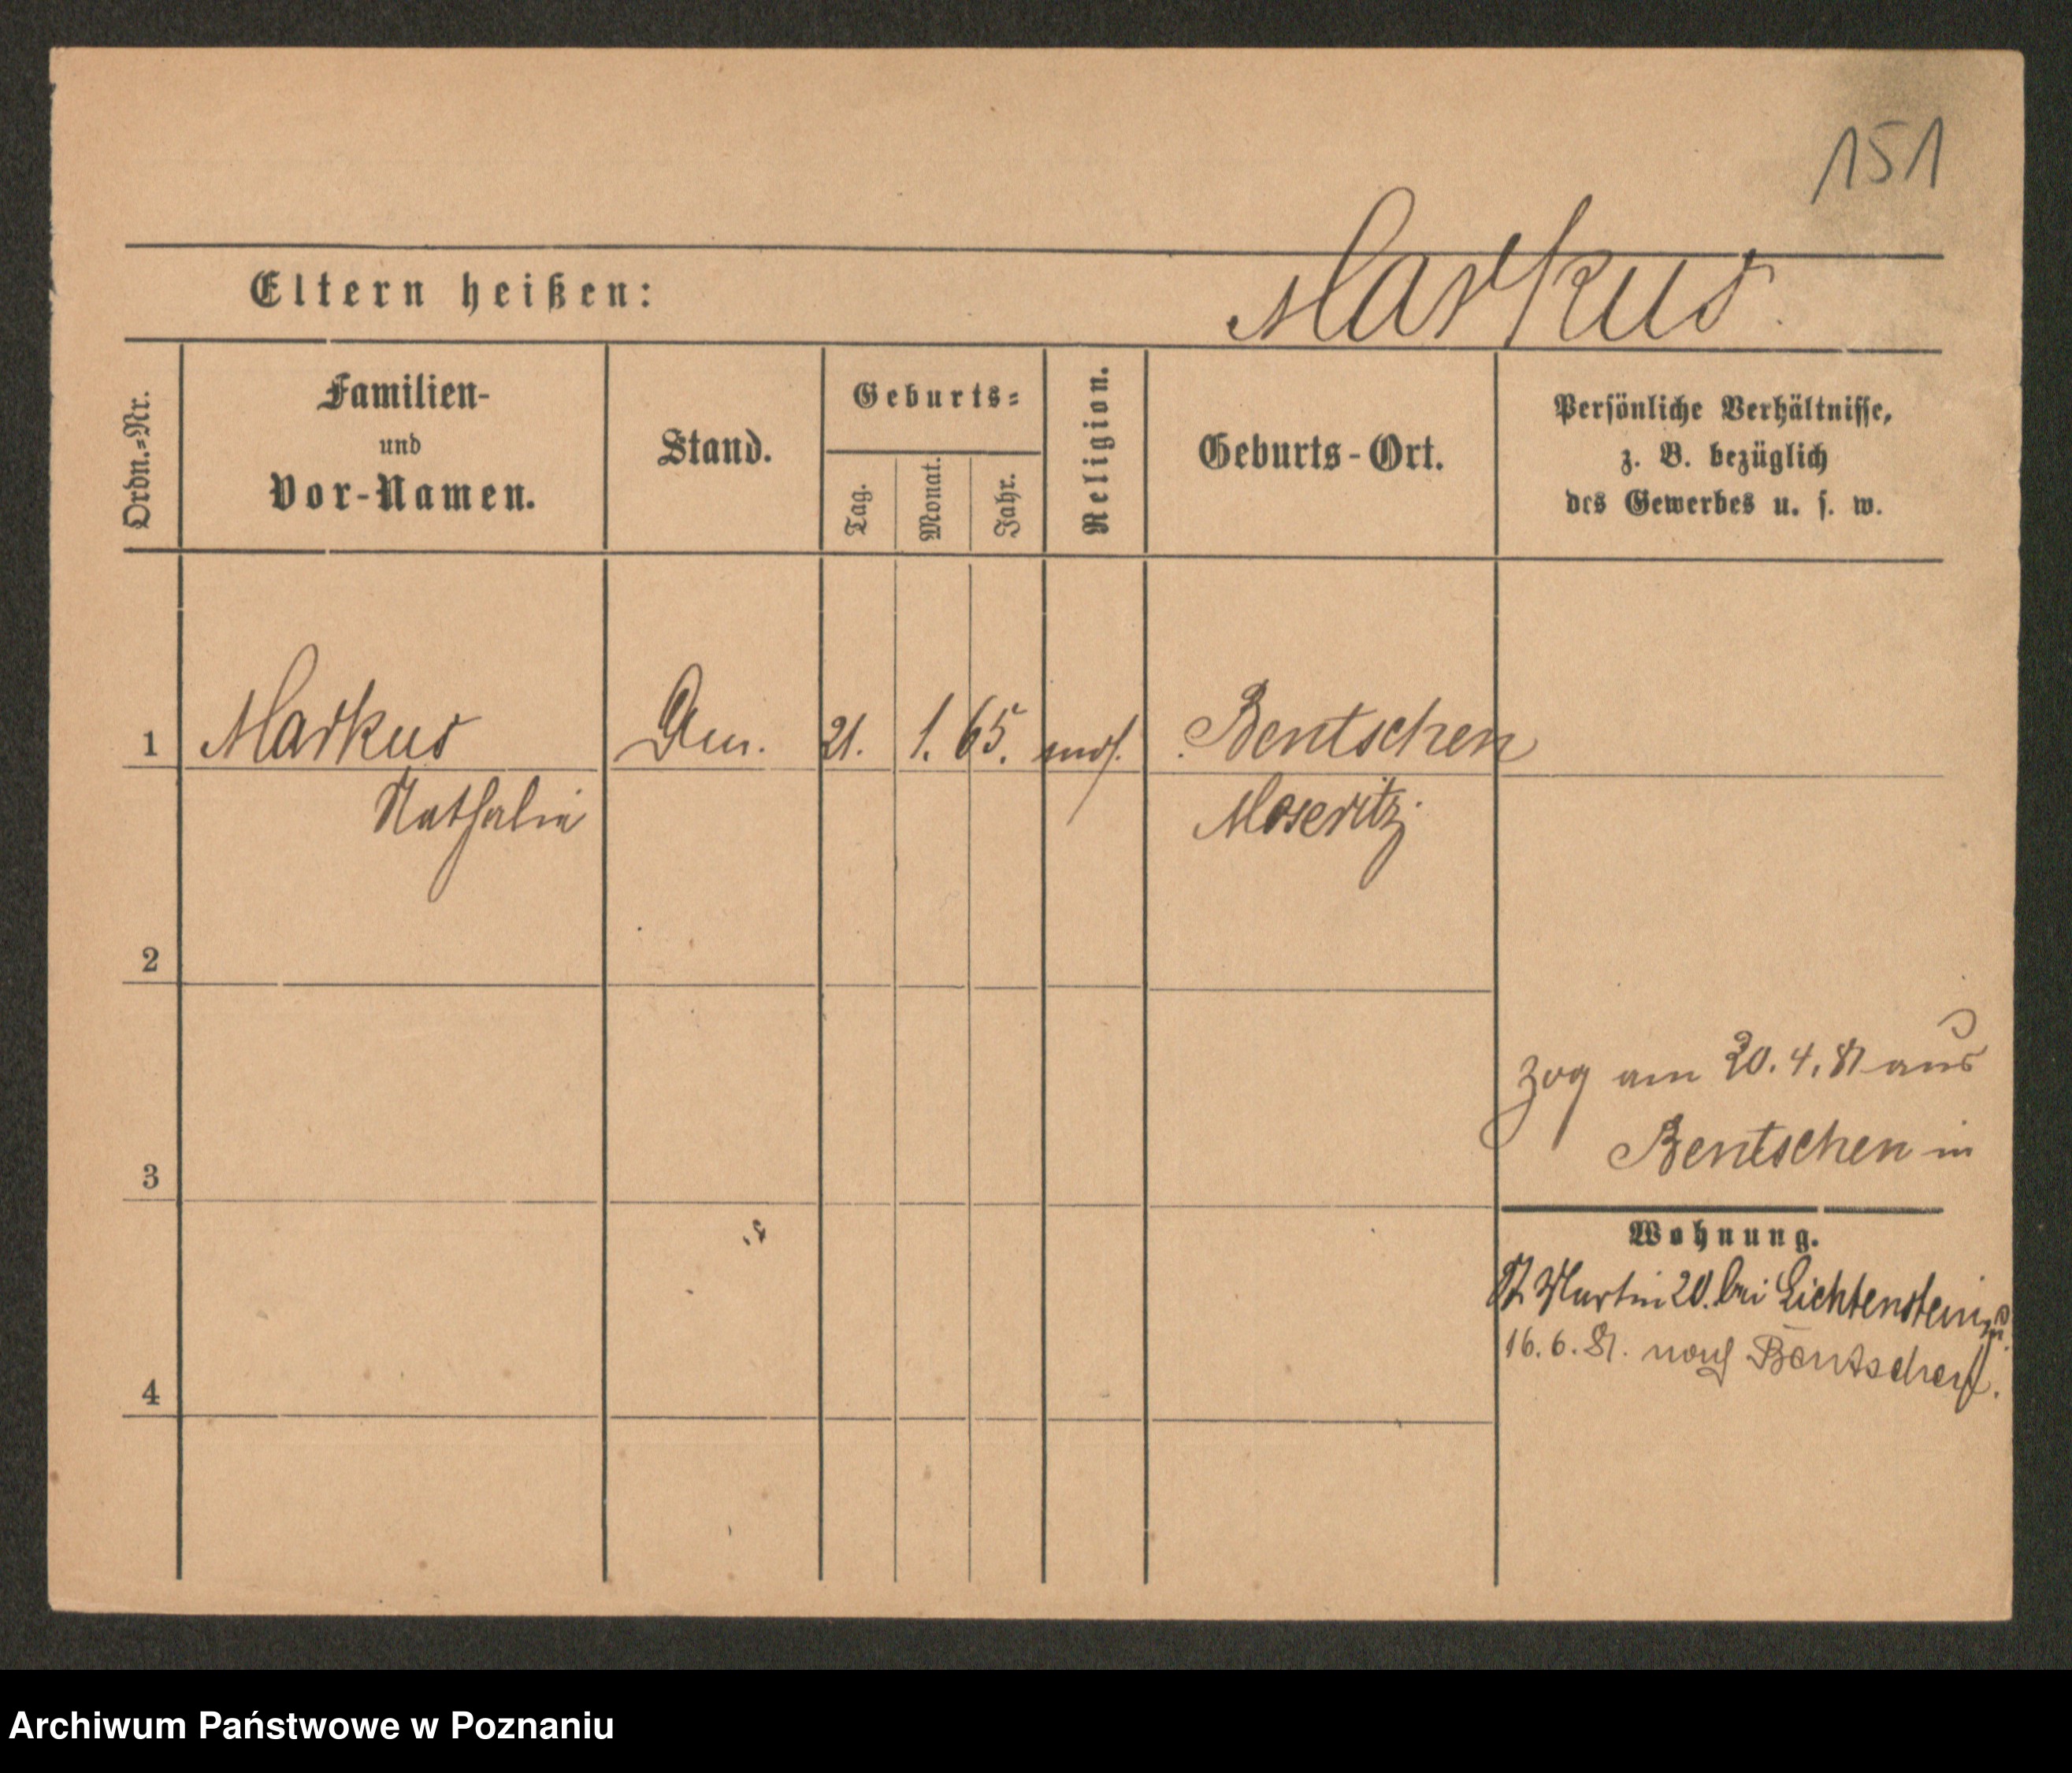 151
Markus
Eltern heißen:
Ordn.-Nr.
Familien-
und
Vor-Namen.
Stand.
Geburts-
Tag.
Monat.
Jahr.
Religion.
Geburts-Ort.
Persönliche Verhältnisse,
z. B. bezüglich
des Gewerbes u. s. w.
1 Markus 21. 1. 65. mos. Bentschen
Nathalie Meseritz
2
zog am 20.4.81 aus
Bentschen in
3
Wohnung.
St. Martin 20. bei Lichtenstein
16.6.81. nach Bentschen.
4
Archiwum Państwowe w Poznaniu